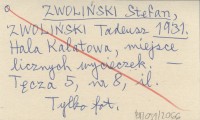 ZWOLIŃSKI Stefan,
ZWOLIŃSKI Tadeusz 1931.
Hala Kalatowa, miejsce
licznych wycieczek. —
Tęcza 5, na 8, il.
Tylko fot.